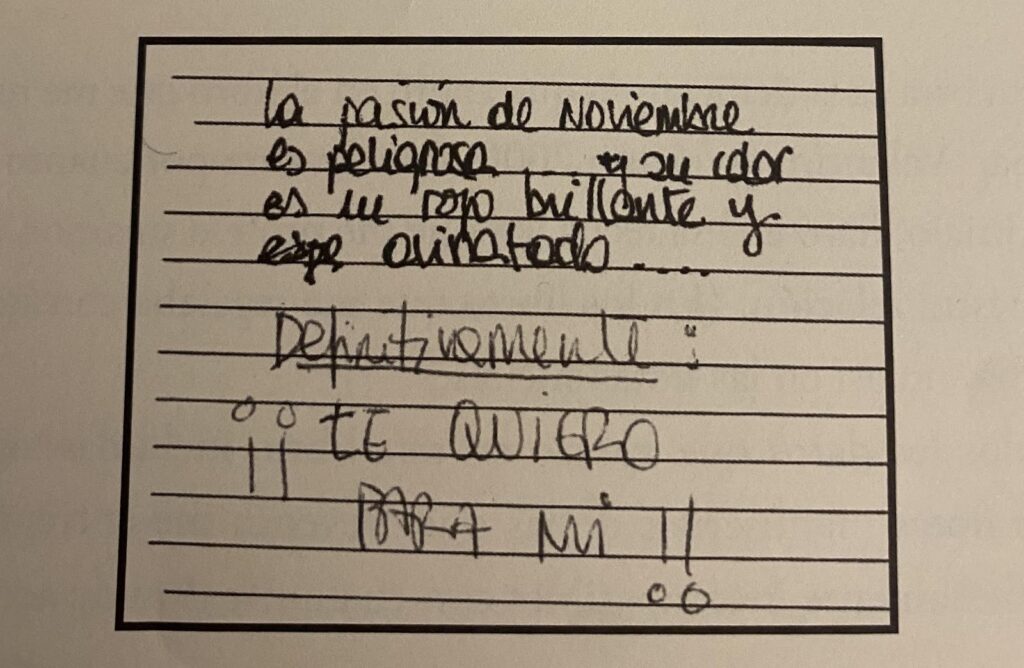 la pasión de Noviembre
es peligrosa ... y su color
es su rojo brillante y
avinatado ....
Definitivamente :
¡¡ TE QUIERO
PARA MÍ !!